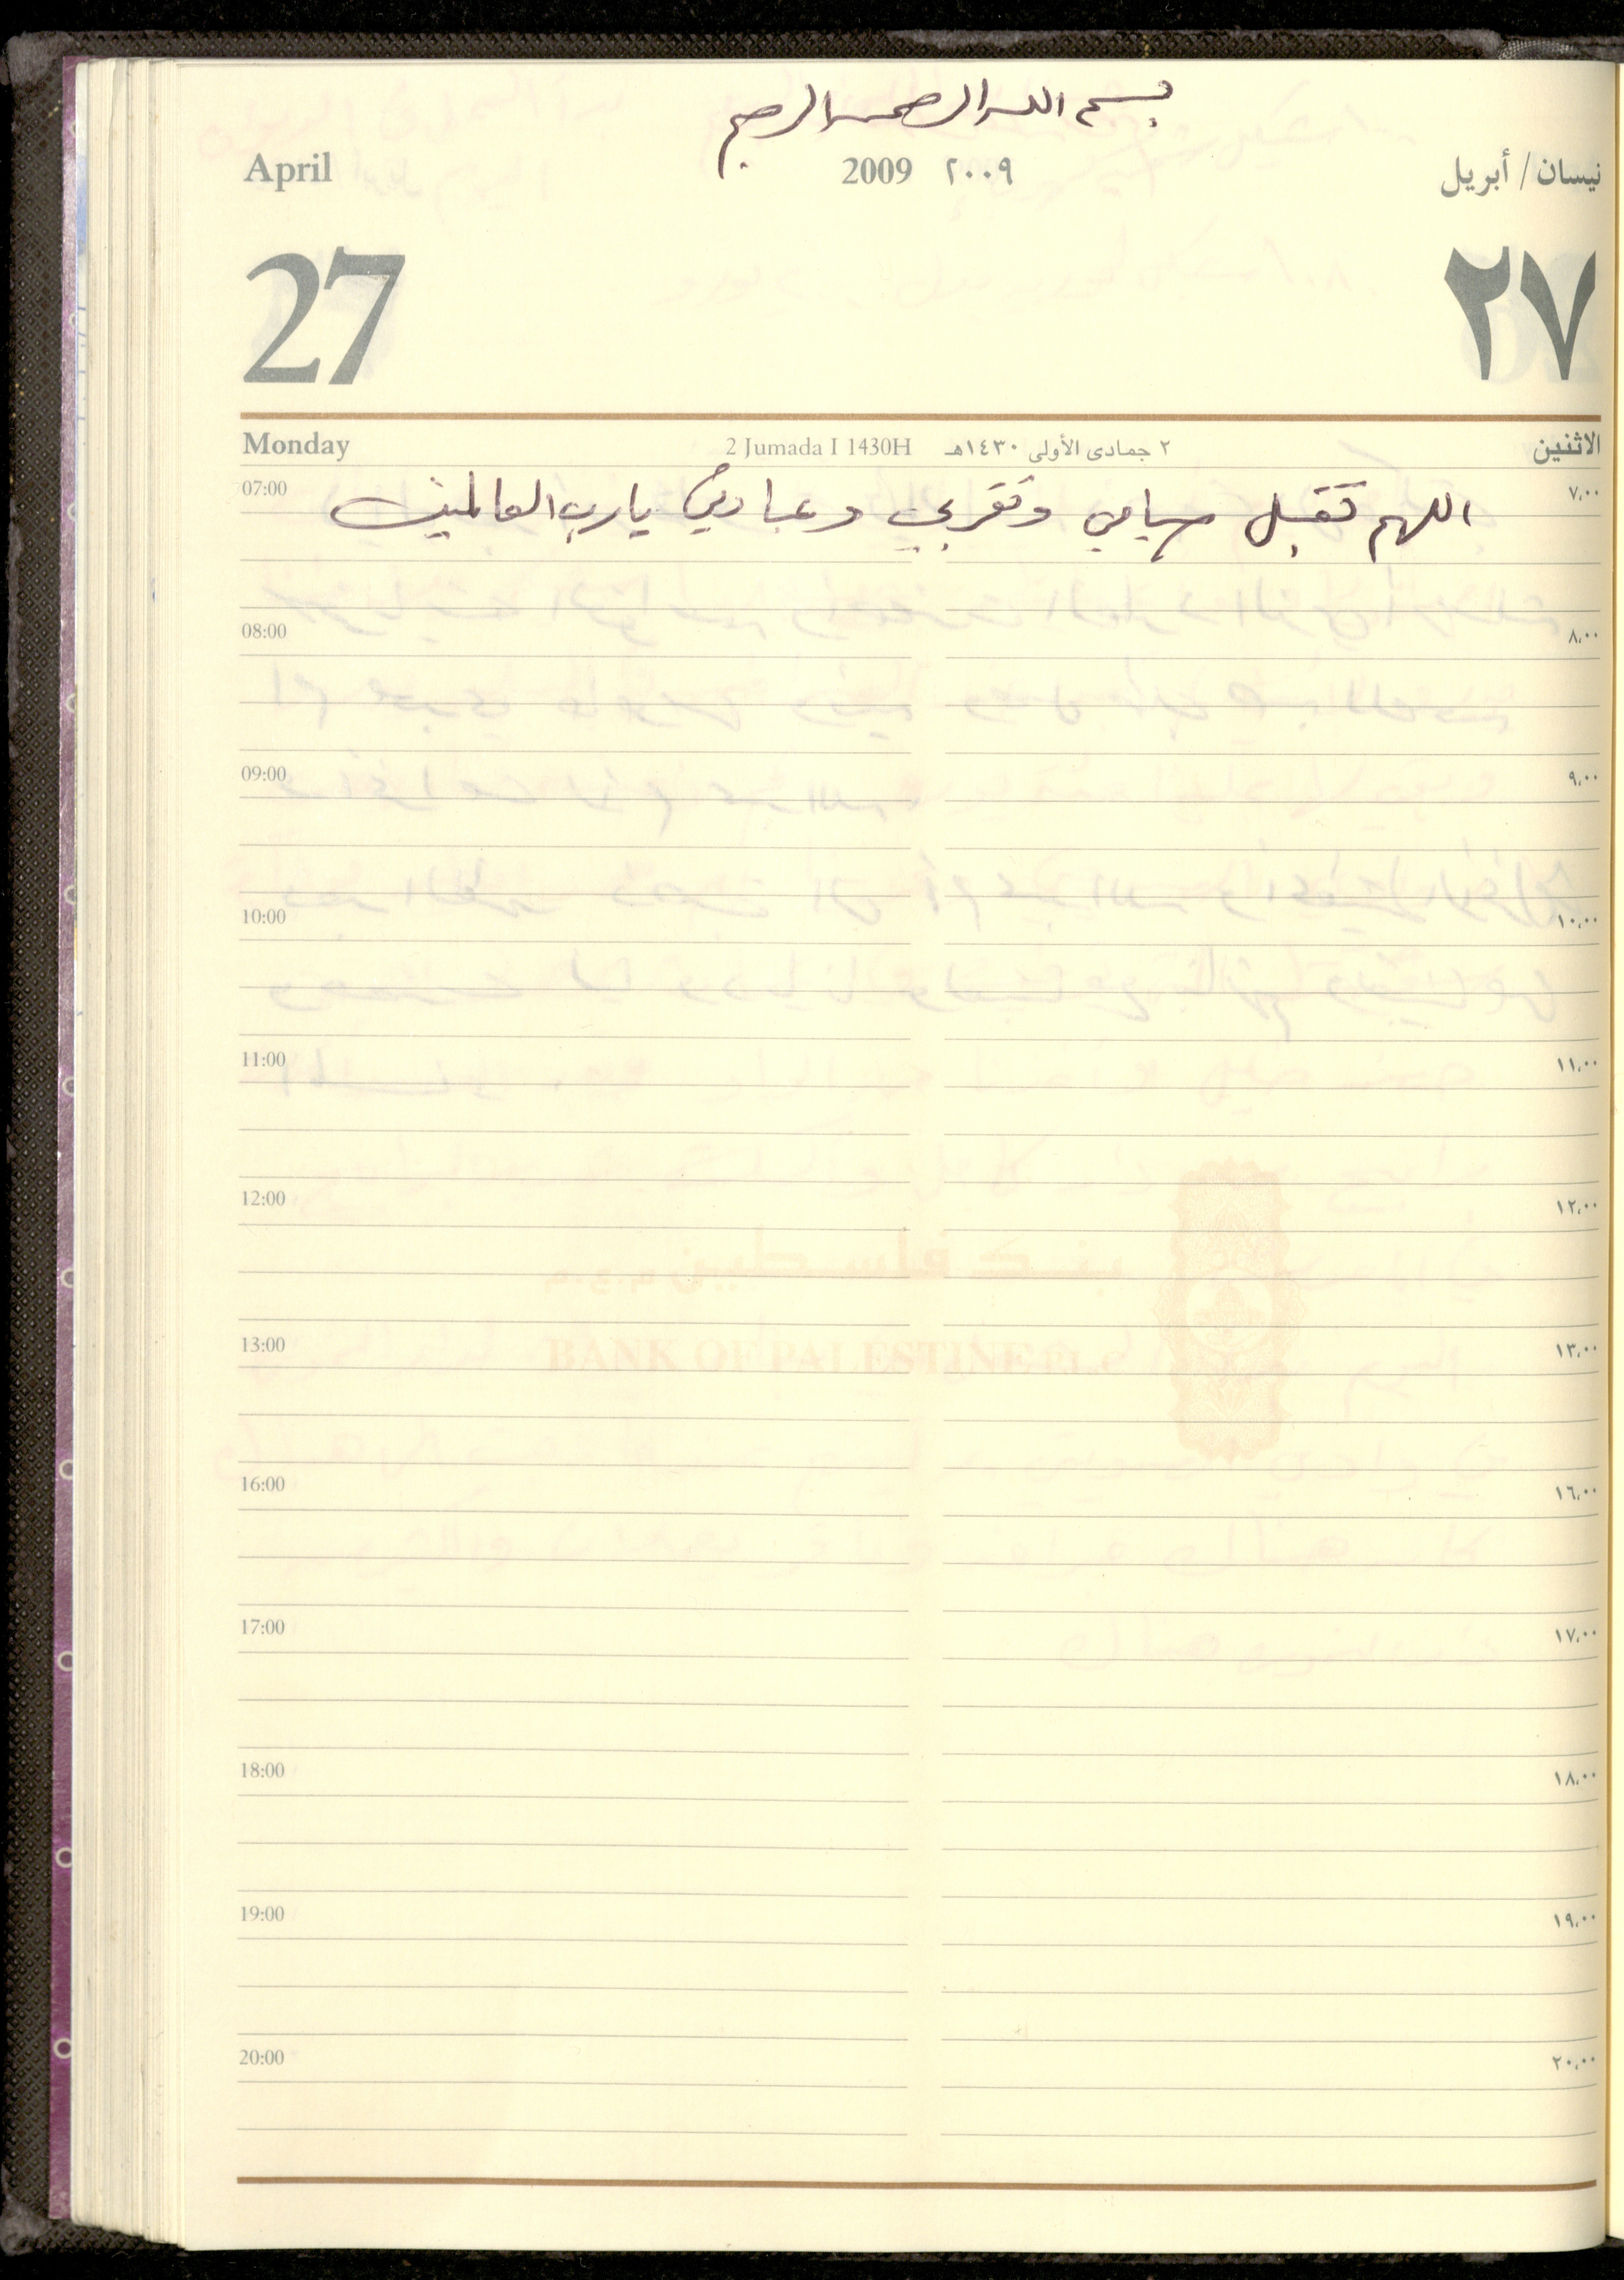 بسم الله الرحمن الرحيم
April 2009 ٢٠٠٩ نيسان/ أبريل
27 ٢٧
Monday 2 Jumada I 1430H ٢ جمادى الأولى ١٤٣٠هـ الاثنين
07:00 ٧،٠٠
اللهم تقبل صيامي وتقربي وعبادتي يا رب العالمين
08:00 ٨،٠٠
09:00 ٩،٠٠
10:00 ١٠،٠٠
11:00 ١١،٠٠
12:00 ١٢،٠٠
بنك فلسطين م.ع.م.
13:00 BANK OF PALESTINE PLC ١٣،٠٠
16:00 ١٦،٠٠
17:00 ١٧،٠٠
18:00 ١٨،٠٠
19:00 ١٩،٠٠
20:00 ٢٠،٠٠